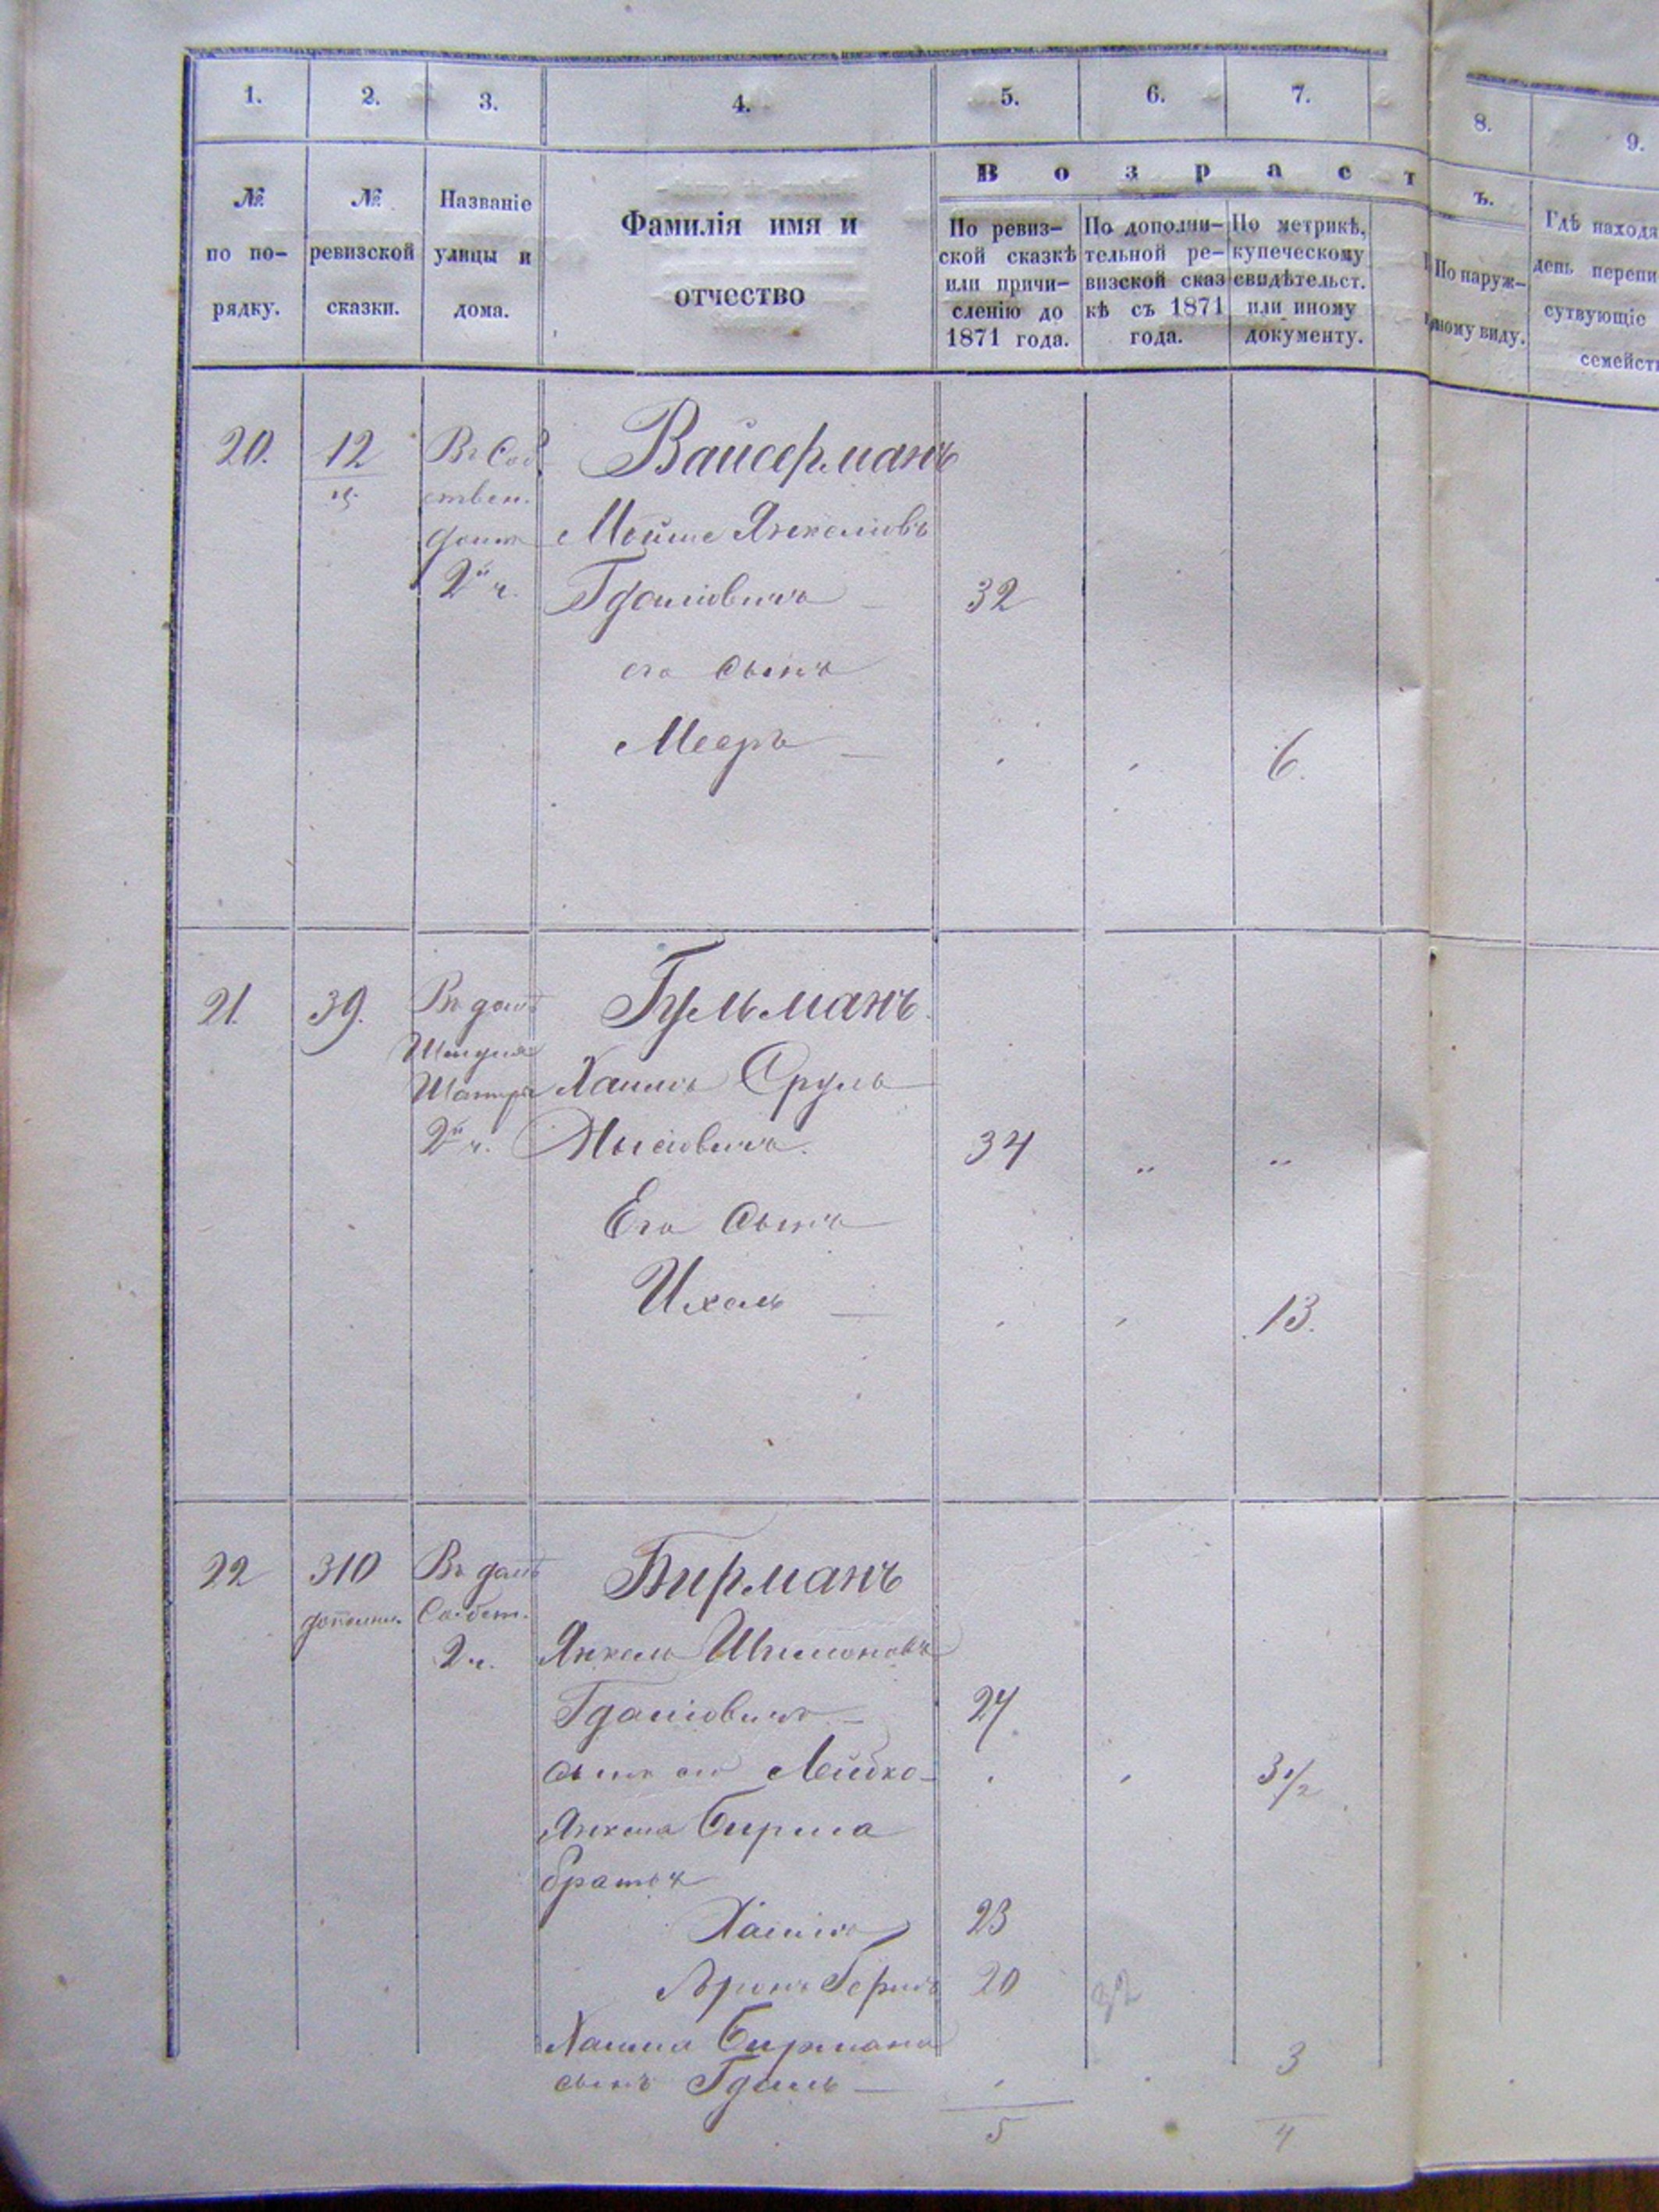 1. 2. 3. 4. 5. 6. 7. 8. 9.
№ по порядку.
№ ревизской сказки.
Названіе улицы и дома.
Фамилія имя и отчество
Возрастъ.
По ревиз-
ской сказкѣ
или причи-
сленію до
1871 года.
По дополни-
тельной ре-
визской сказ
кѣ съ 1871
года.
По метрикѣ,
купеческому
свидѣтельст.
или иному
документу.
По наруж-
ному виду.
Гдѣ находя
день перепи
сутвующіе
семейст
20. 12 Въ Соб
ствен.
домѣ
2й ч.
Вайсерманъ
Мойше Янкелiовъ
Гдалiовичъ 32
его сынъ
Мееръ 6.
21. 39. Въ домѣ
2й ч.
Гульманъ.
Хаимъ Сруль
34
Его сынъ
Ихель 13.
22 310 Въ домѣ
дополн. Собст.
2 ч.
Бирманъ
Янкель Шимоновъ
Гдалiовичъ 24
сынъ его Лейбко 3 1/2
Янкеля Бирма
братья
Хаимъ 23
Аронъ Гершъ 20 32
Хаима Бирмана
сынъ Гдаль 3
5 4